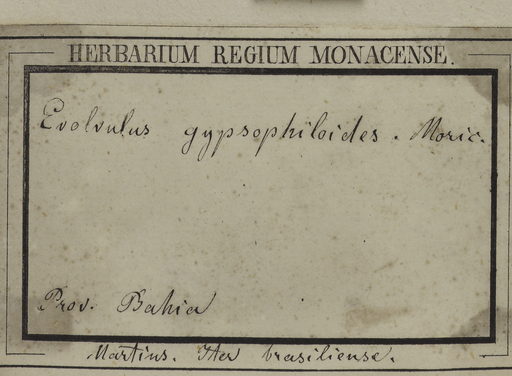 HERBARIUM REGIUM MONACENSE.
Evolvulus gypsophiloides. Moric.
Prov. Bahia
Martius. Iter brasiliense.